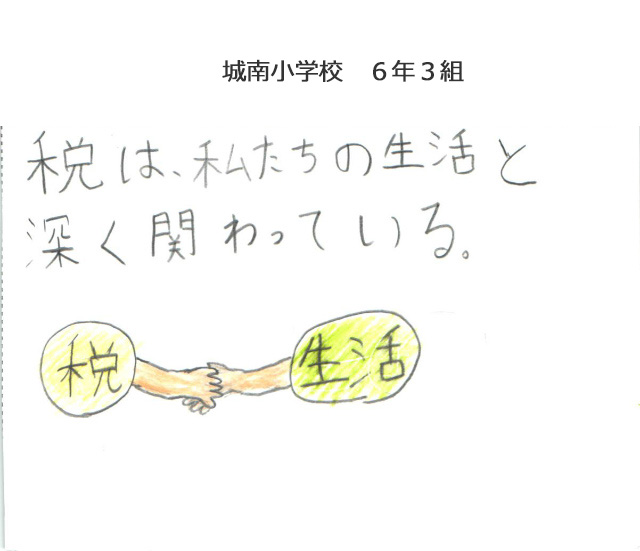 城南小学校　６年３組
税は、私たちの生活と
深く関わっている。
税 生活